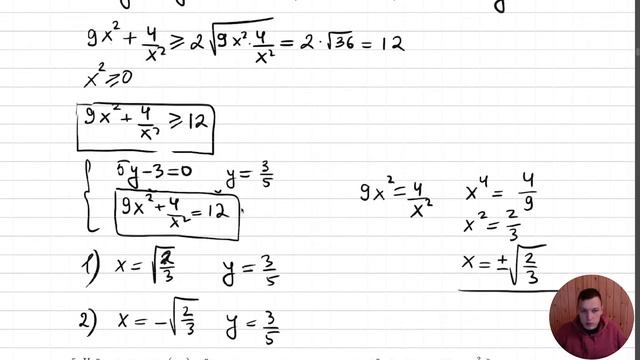 9x² + 4/x² ⩾ 2√(9x² · 4/x²) = 2 · √36 = 12
x² ⩾ 0
9x² + 4/x² ⩾ 12
5y − 3 = 0 y = 3/5
9x² + 4/x² = 12
9x² = 4/x² x⁴ = 4/9
x² = 2/3
x = ±√(2/3)
1) x = √(2/3) y = 3/5
2) x = −√(2/3) y = 3/5